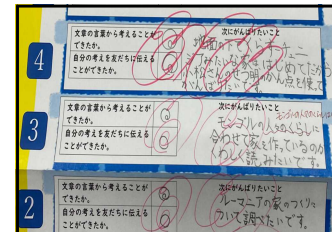 4
文章の言葉から考えることが
できたか。
自分の考えを友だちに伝える
ことができたか。
次にがんばりたいこと
地面の下でくらすチュニ
みたいな家ははじめてだから
小松さんのせつ明のかん点を使って
がんばりたい。
3
文章の言葉から考えることが
できたか。
自分の考えを友だちに伝える
ことができたか。
次にがんばりたいこと
モンゴルの人々のくらしに
合わせて家を作っているのか
くわしく読みたいです。
2
文章の言葉から考えることが
できたか。
自分の考えを友だちに伝える
ことができたか。
次にがんばりたいこと
ルーマニアの家のつくりに
ついて調べたいです。